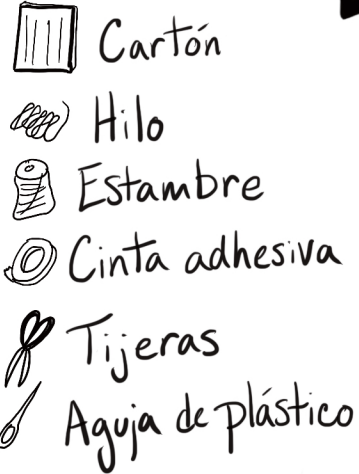 Cartón
Hilo
Estambre
Cinta adhesiva
Tijeras
Aguja de plástico